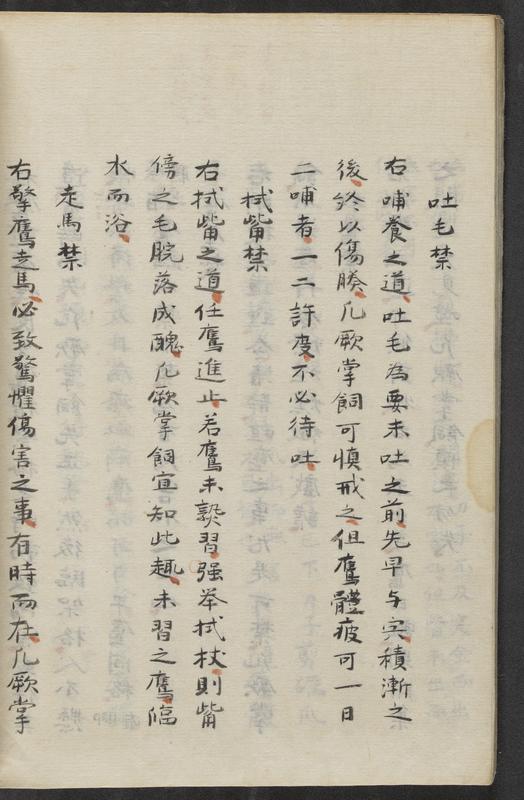 吐毛禁
右哺養之道吐毛為要未吐之前先早与宍積漸之
後終以傷勝凢厥掌飼可慎戒之但鷹體疲可一日
二哺者一二許度不必待吐
拭觜禁
右拭觜之道任鷹進止若鷹未熟習强举拭杖則觜
傍之毛脘落成醜凢厥掌飼宜知此趣未習之鷹臨
水而浴
走馬禁
右擎鷹走馬必致驚懼傷害之事有時而在凢厥掌